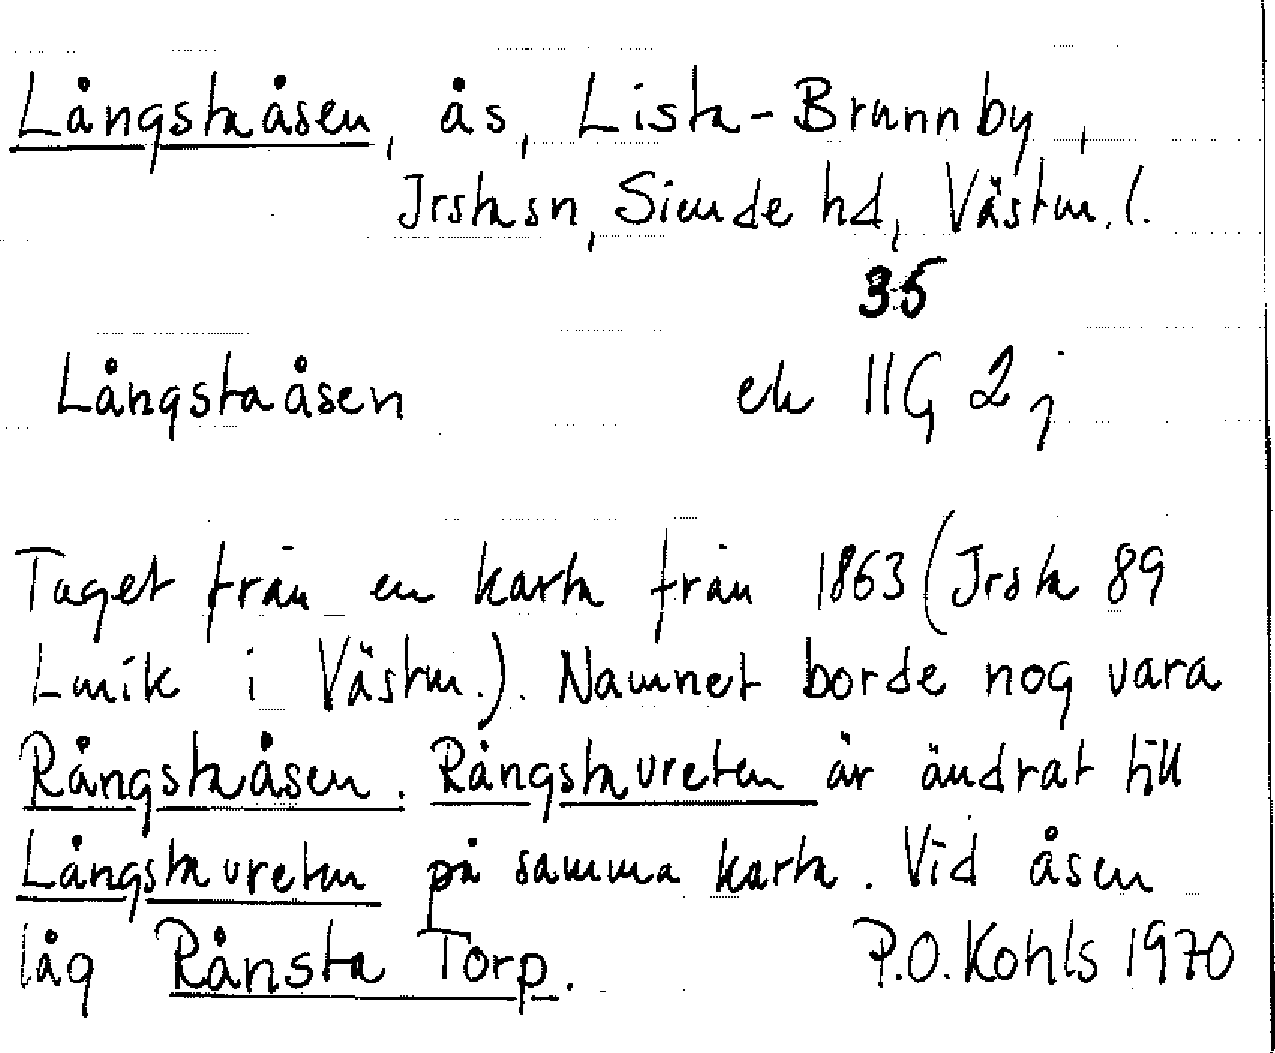 Långstaåsen, ås, Lista-Brunnby,
Irsta sn, Siende hd, Västm. l.
35
Långstaåsen ek 11G 2j
Taget från en karta från 1863 (Irsta 89
Lmik i Västm.). Namnet borde nog vara
Rångstaåsen. Rångstavreten är ändrat till
Långstavreten på samma karta. Vid åsen
låg Rånsta Torp. P.O. Kohls 1970